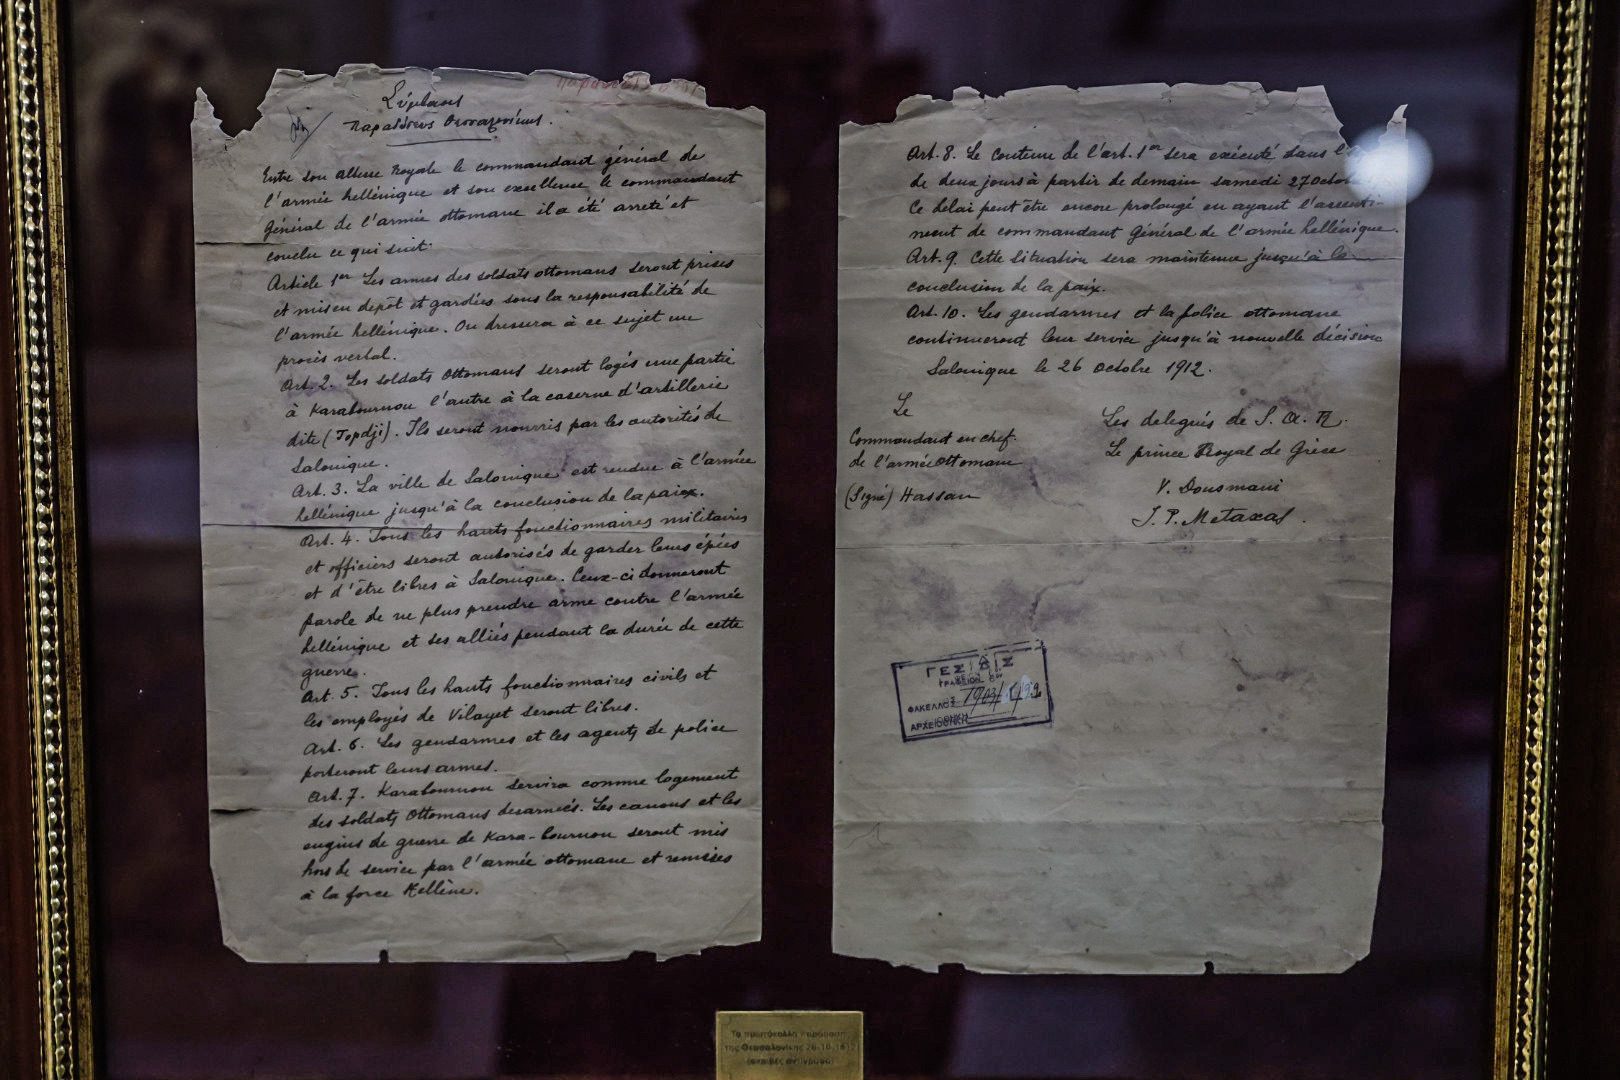 Σύμβασις
Παραδόσεως Θεσσαλονίκης.
Entre son altesse Royale le commandant général de
l'armée hellénique et son excellence le commandant
Général de l'armée ottomane il a été arreté et
conclu ce qui suit.
Article 1er Les armes des soldats ottomans seront prises
et mis en depôt et gardées sous la responsabilité de
l'armée hellénique. On dressera à ce sujet un
procès verbal.
Art. 2. Les soldats Ottomans seront logés une partie
à Karabournou l'autre à la caserne d'artillerie
dite (Topdji). Ils seront nourris par les autorités de
Salonique.
Art. 3. La ville de Salonique est rendue à l'armée
hellénique jusqu'à la conclusion de la paix.
Art. 4. Tous les hauts fonctionnaires militaires
et officiers seront autorisés de garder leurs épées
et d'être libres à Salonique. Ceux-ci donneront
parole de ne plus prendre arme contre l'armée
hellénique et ses alliés pendant la durée de cette
guerre.
Art. 5. Tous les hauts fonctionnaires civils et
les employés de Vilayet seront libres.
Art. 6. Les gendarmes et les agents de police
porteront leurs armes.
Art. 7. Karabournou servira comme logement
des soldats Ottomans desarmés. Les canons et les
engins de guerre de Kara-bournou seront mis
hors de service par l'armée ottomane et remises
à la force Hellène.
Art. 8. Le contenu de l'art. 1er sera exécuté dans
de deux jours à partir de demain samedi 27
Ce délai peut être encore prolongé en ayant l'assenti-
ment de commandant Général de l'armée hellénique.
Art. 9. Cette situation sera maintenue jusqu'à la
conclusion de la paix.
Art. 10. Les gendarmes et la police ottomane
continueront leur service jusqu'à nouvelle décision
Salonique le 26 octobre 1912.
Le
Commandant en chef
de l'armée Ottomane
(Signé) Hassan
Les delegués de S. A. R.
Le prince Royal de Grèce
V. Dousmani
J. P. Metaxas.
ΓΕΣ/ΔΙΣ
ΦΑΚΕΛΛΟΣ
Το πρωτόκολλο παράδοσης
της Θεσσαλονίκης 26-10-1912
(ακριβές αντίγραφο)